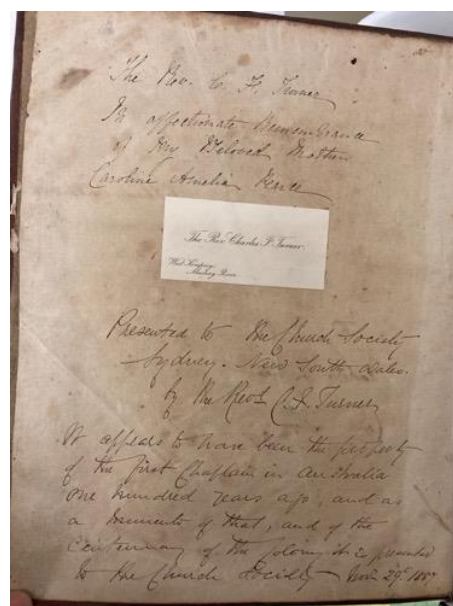 The Rev. C. F. Turner
In affectionate Remembrance
of my Beloved Mother
Caroline Amelia Pearce
The Rev. Charles F. Turner.
West Kempsey,
Macleay River.
Presented to the Church Society
Sydney. New South Wales.
by the Revd C. F. Turner
It appears to have been the property
of the first Chaplain in Australia
one hundred years ago, and as
a memento of that, and of the
Centenary of the Colony it is presented
to the Church Society Nov. 29th 1887